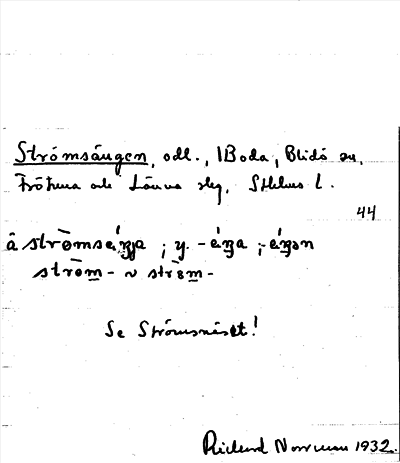 Strömsängen, odl., 1 Boda, Blidö sn,
Frötuna och Länna slg, Sthlms l.
44
å strömsäŋŋa ; y. -
ström- ~ ström-
Se Strömsnäset!
Rickard Norrman 1932.